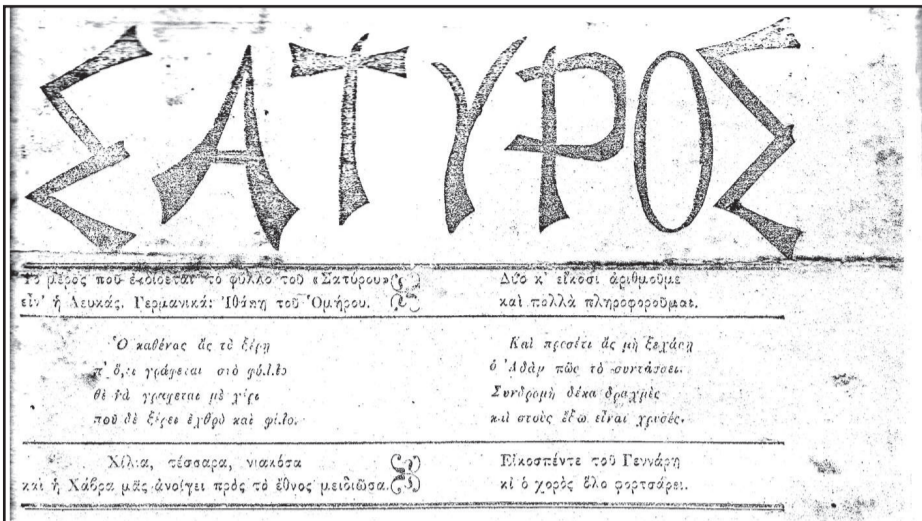 ΣΑΤΥΡΟΣ
Τὸ μέρος ποῦ ἐκδίδεται τὸ φύλλο τοῦ «Σατύρου»
εἶν' ἡ Λευκάς. Γερμανικά: Ἰθάκη τοῦ Ὁμήρου.
Δύο κ' εἴκοσι ἀριθμοῦμε
καὶ πολλὰ πληροφοροῦμαι.
Ὁ καθένας ἂς τὸ ξέρῃ
π' ὅ,τι γράφεται στὸ φύλλο
θὲ νὰ γράφεται μὲ χέρι
ποῦ δὲ ξέρει ἐχθρὸ καὶ φίλο.
Καὶ προσέτι ἂς μὴ ξεχάσῃ
ὁ Ἀδὰμ πῶς τὸ συντάσσει.
Συνδρομὴ δέκα δραχμὲς
καὶ στοὺς ἔξω εἶναι χρυσές.
Χίλια, τέσσαρα, νιακόσα
καὶ ἡ Χάβρα μᾶς ἀνοίγει πρὸς τὸ ἔθνος μειδιῶσα.
Εἰκοσπέντε τοῦ Γεννάρη
κι ὁ χορὸς ὅλο φορτσάρει.